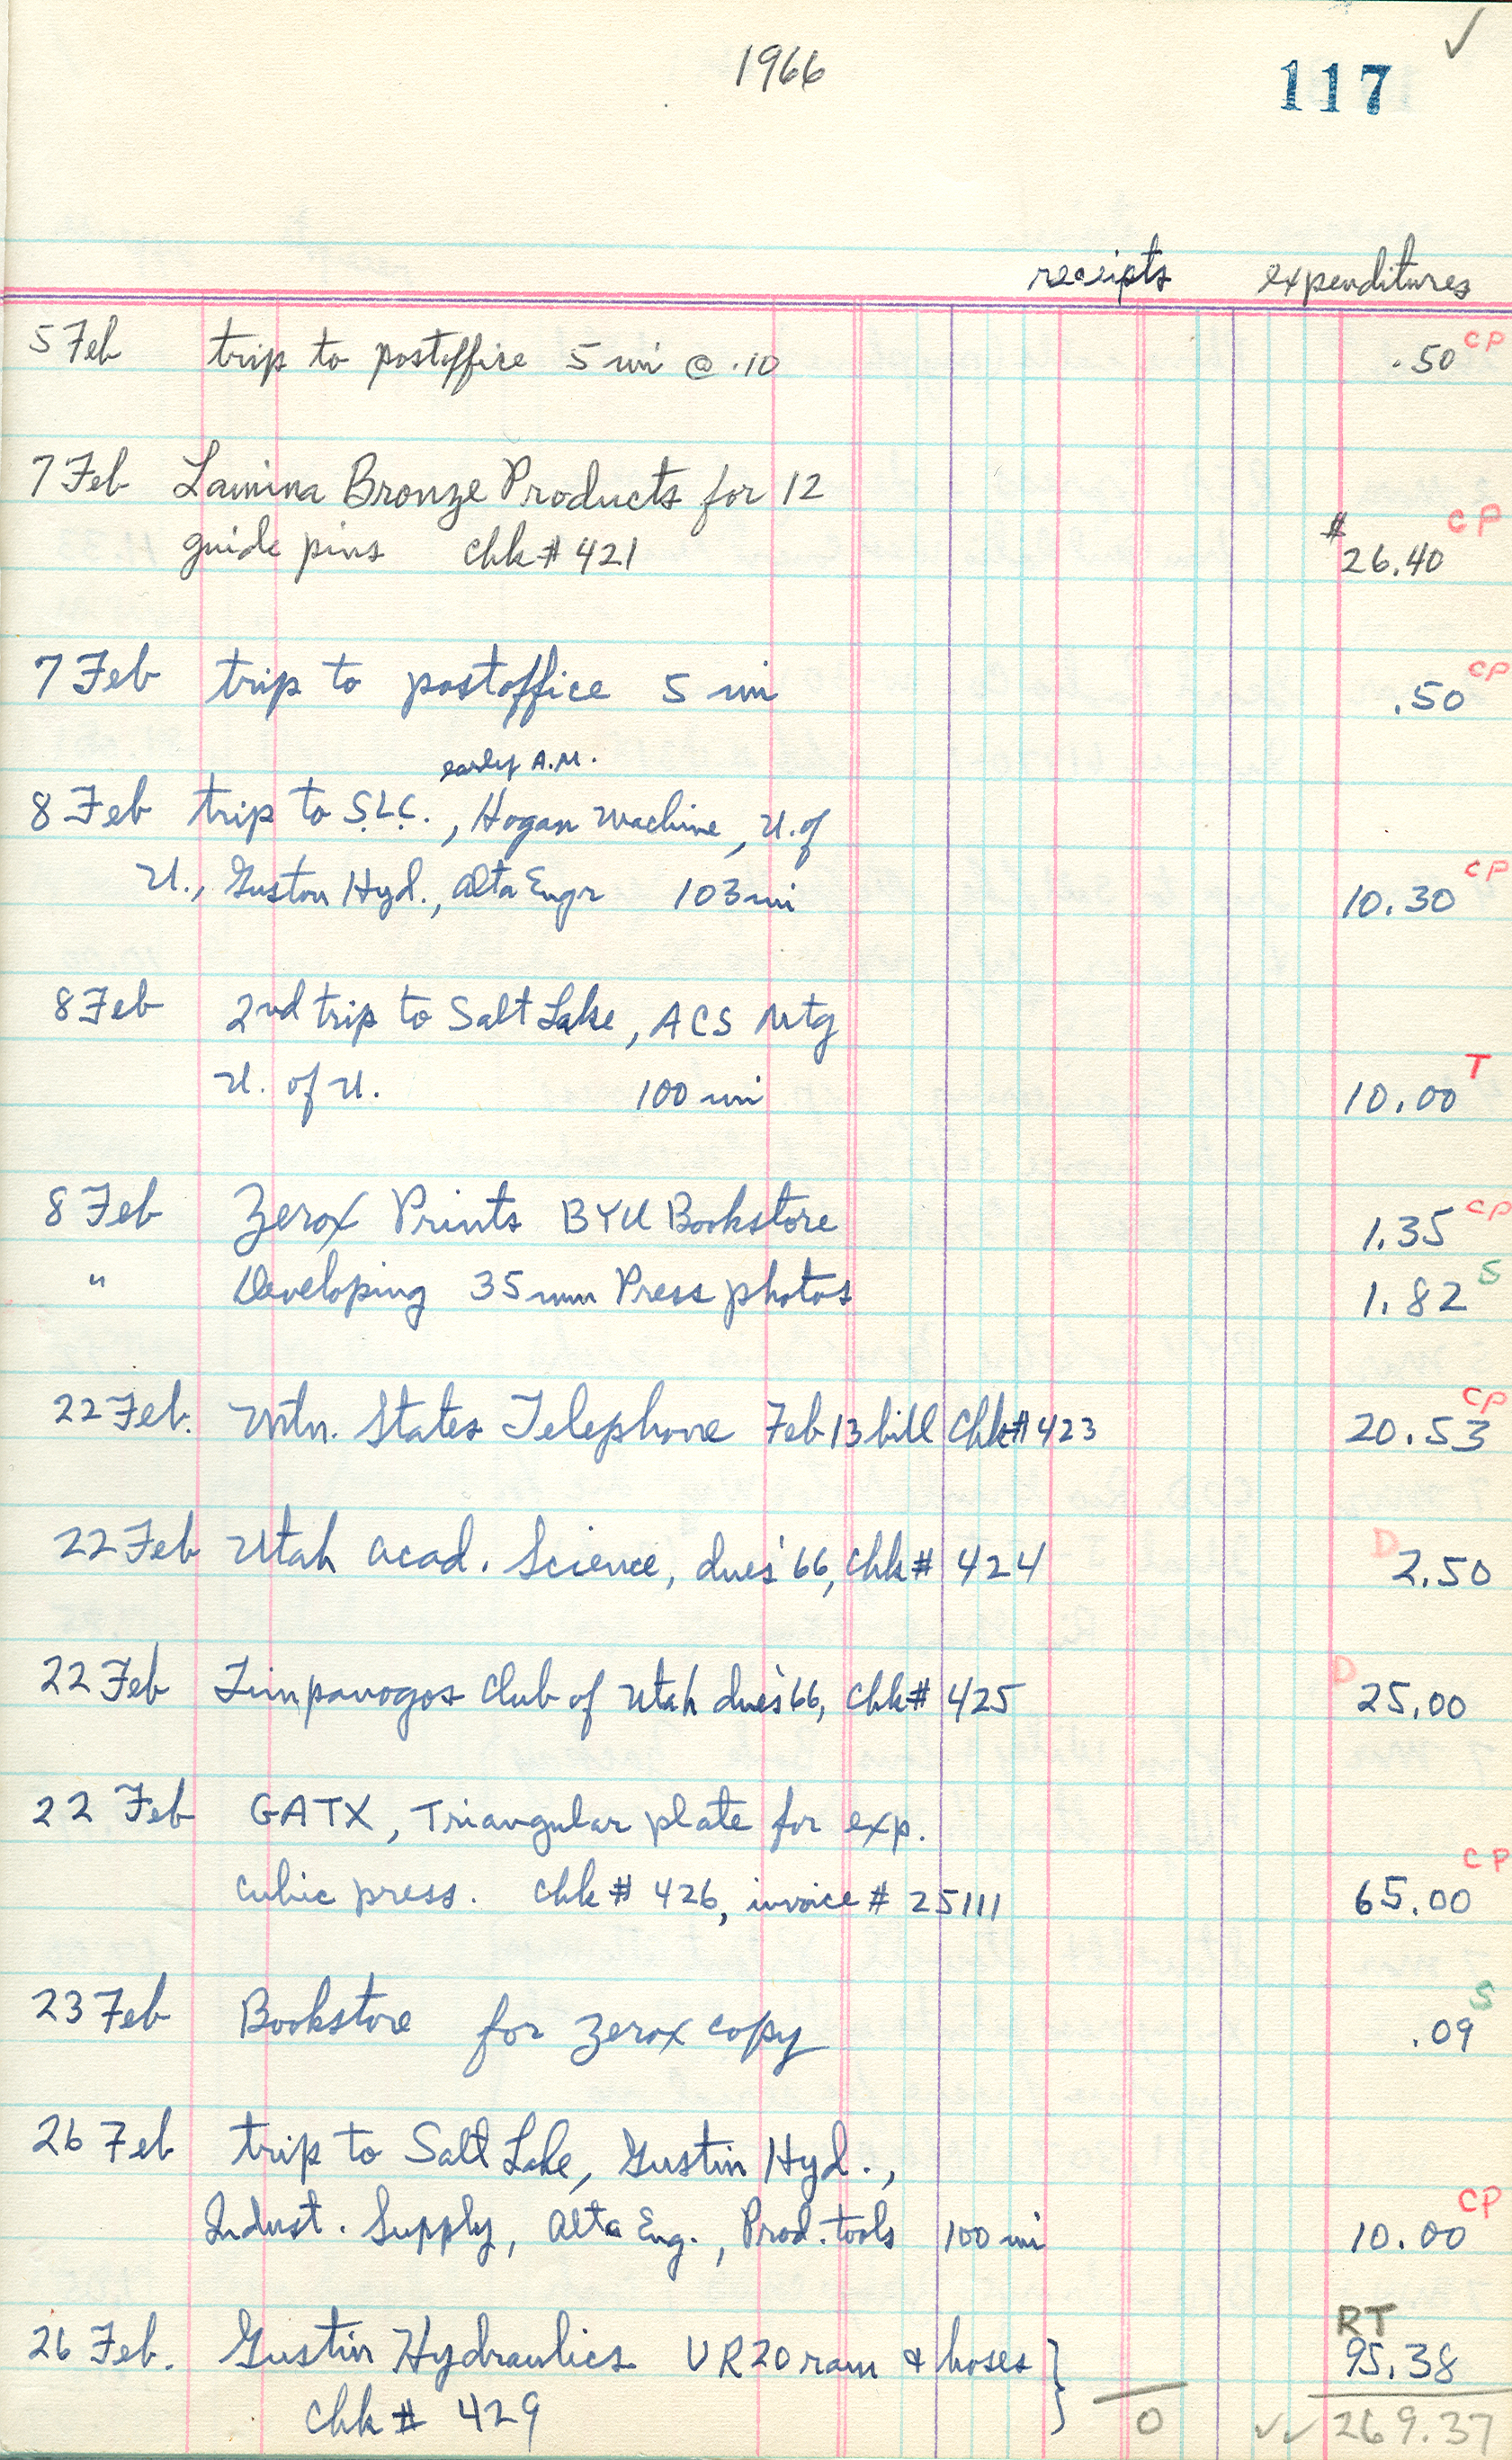 ✓
1966
117
receipts expenditures
5 Feb trip to postoffice 5 mi @ .10 .50 CP
7 Feb Lamina Bronze Products for 12
guide pins chk# 421 $26.40 CP
7 Feb trip to postoffice 5 mi .50 CP
early A.M.
8 Feb trip to S.L.C., Hogan Machine, U. of
U., Guston Hyd., Alta Engr 103 mi 10.30 CP
8 Feb 2nd trip to Salt Lake, ACS Mtg
U. of U. 100 mi 10.00 T
8 Feb Zerox Prints BYU Bookstore 1.35 CP
" Developing 35mm Press photos 1.82 S
22 Feb. Mtn. States Telephone Feb 13 bill Chk# 423 20.53 CP
22 Feb Utah Acad. Science, dues '66, Chk# 424 D 2.50
22 Feb Timpanogos Club of Utah dues '66, Chk# 425 D 25.00
22 Feb GATX, Triangular plate for exp.
cubic press. Chk# 426, invoice # 25111 65.00 CP
23 Feb Bookstore for zerox copy .09 S
26 Feb trip to Salt Lake, Gustin Hyd.,
Indust. Supply, Alta Eng., Prod. tools 100 mi 10.00 CP
RT
26 Feb. Gustin Hydraulics VR20 ram & hoses } 95.38
Chk# 429 0 ✓✓ 269.37